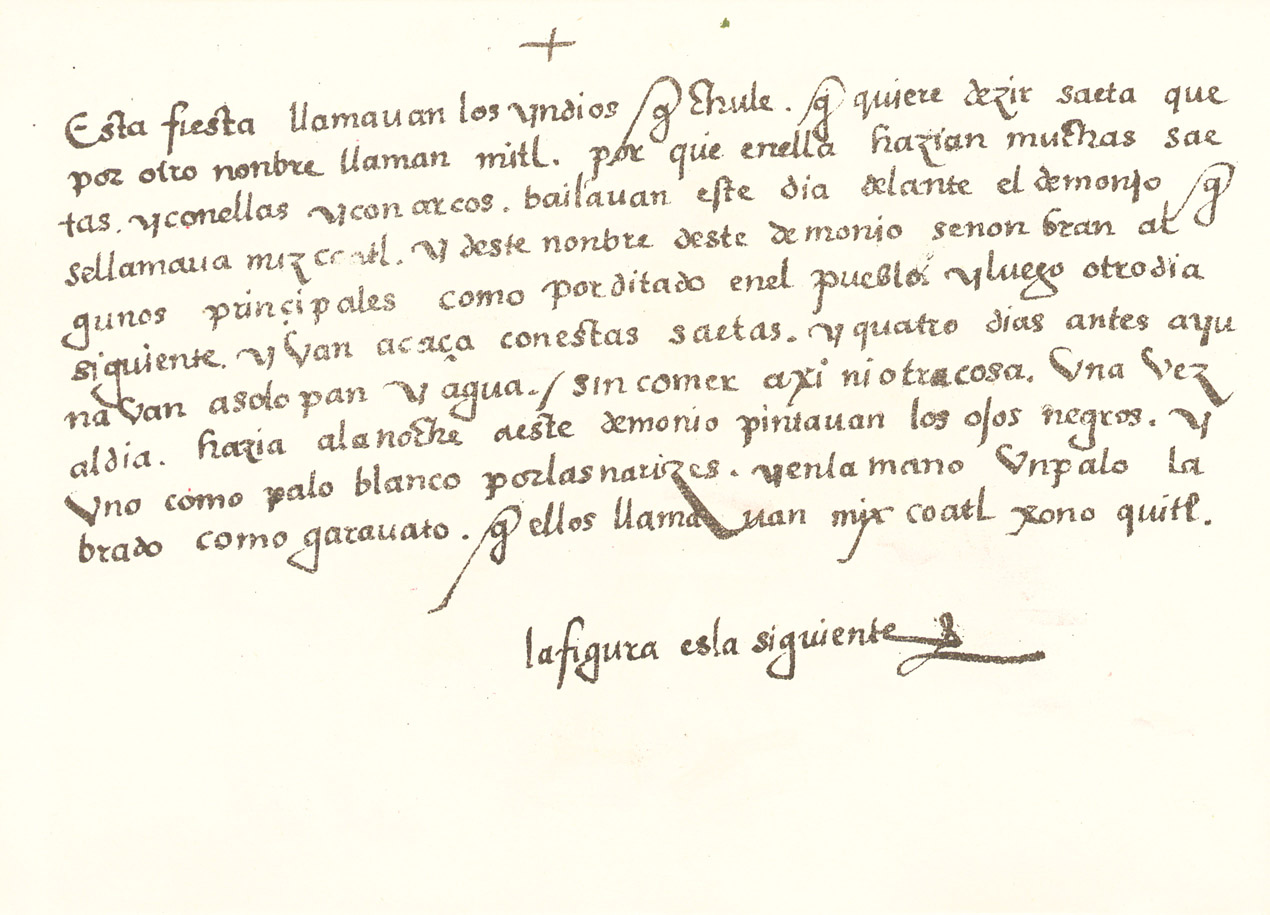 +
Esta fiesta llamavan los yndios q̃ chule. q̃ quiere dezir saeta que
por otro nonbre llaman mitl. por que enella hazian muchas sae
tas. yconellas ycon arcos. bailavan este dia delante el demonjo q̃
sellamava mizcoatl. y deste nonbre deste demonio senonbran al
gunos prinçipales como por ditado enel pueblo. yluego otrodia
siquiente. y van acaça conestas saetas. y quatro dias antes ayu
navan asolo pan y agua. / sin comer axi niotracosa. Una vez
aldia. hazia alanoche aeste demonio pintavan los ojos negros. y
Uno como palo blanco porlasnarizes. yenla mano Unpalo la
brado como garavato. q̃ ellos llama uan mix coatl xono quitl.
lafigura esla siguiente